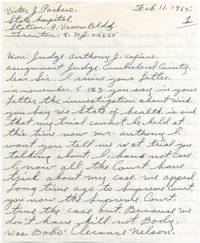 Victor J. Feb. 11, 1985.
State hospital
Station A,
Trenton 8. N.J. 08625
1
Hon. Judge Anthony J.
assignment Judge, Cumberland County,
dear Sir. I receive your letter,
in november 5. you say in your
letter the investigation about wich
you say we State of health, is and
that my trial cannot be held at
this time now mr. anthony I
want you tell me is at tried you
talking about I have not case
no more all the Court have
trick about my case. we appeal
long time ago to Supreme Court
you now the Supreme Court
tried the case but Because we
don't have skill not Body.
was Bobo Clerance Nelson.